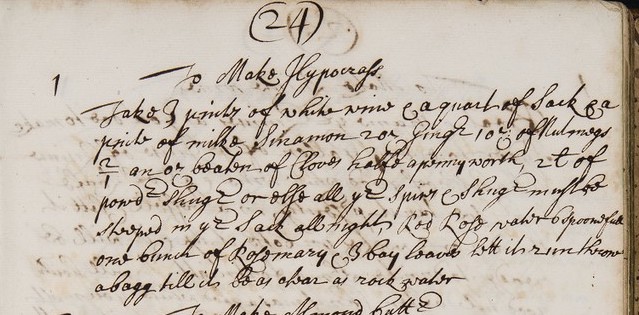 (24)
1 To Make Hypocrass
Take 3 pints of white wine & a quart of Sack & a
pinte of milke Sinamon 2 oz Ging^r 1 oz of Nutmegs
½ an oz beaten of Cloves halfe a penny worth 2 ℔ of
powd^r Shug^r or else all y^e spice & Shug^r must be
steeped in y^e Sack all night, Red Rose water 6 spoonfull
one bunch of Rosemary & 3 bay leaves lett it run throw
a bagg till it be as clear as rock water
To Make Almond butt^r